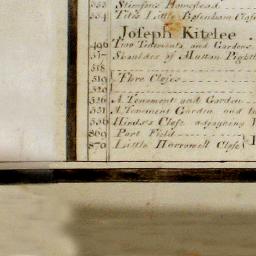 553 Stimson's Homestead
554 Title Little Bosenham Close
Joseph Kitelee
496 Two Tenements and Gardens
517 Shoulder of Mutton Pightle
518
519 Three Closes
520
526 A Tenement and Garden
531 A Tenement Garden and
536 Hinds's Close adjoining
869 Port Field
870 Little Horromell Close